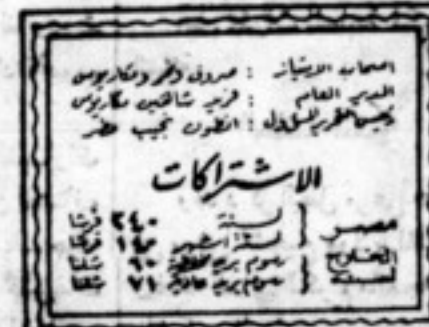 اصحاب الامتياز : صروف ونمر ومكاريوس
المدير العام : فريد شاهين مكاريوس
رئيس التحرير المسئول : انطون نجيب مطر
الاشتراكات
مصر { لسنة ٢٤٠ قرشا
لستة اشهر ١٤٥ قرشا
الخارج لسنة { رسوم بريد مخفضة ٦٠ شلنا
رسوم بريد عادية ٧١ شلنا